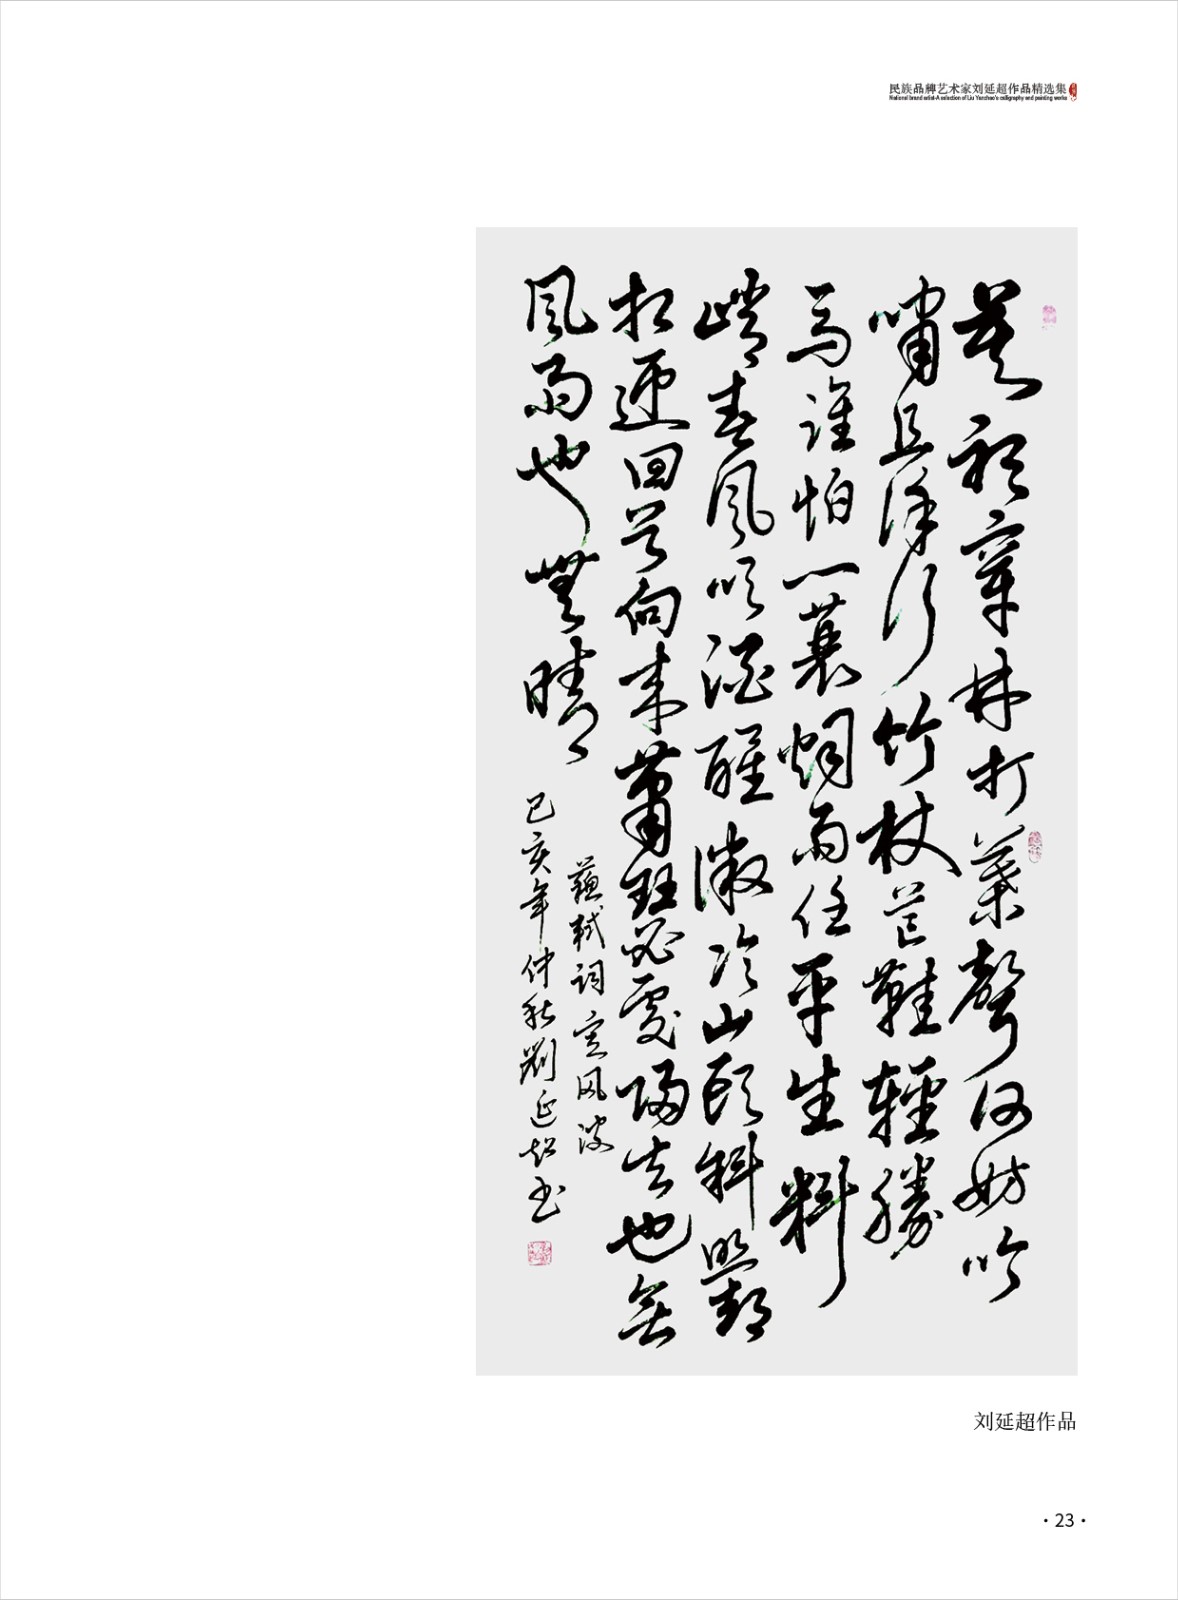 民族品牌艺术家刘延超作品精选集
National brand artist-A selection of Liu Yanchao's calligraphy and painting works
莫聽穿林打葉聲何妨吟
嘯且徐行竹杖芒鞋輕勝
馬誰怕一蓑烟雨任平生料
峭春風吹酒醒微冷山頭斜照却
相迎回首向来蕭瑟處歸去也無
風雨也無晴
蘇軾詞定风波
己亥年仲秋劉延超书
刘延超作品
·23·